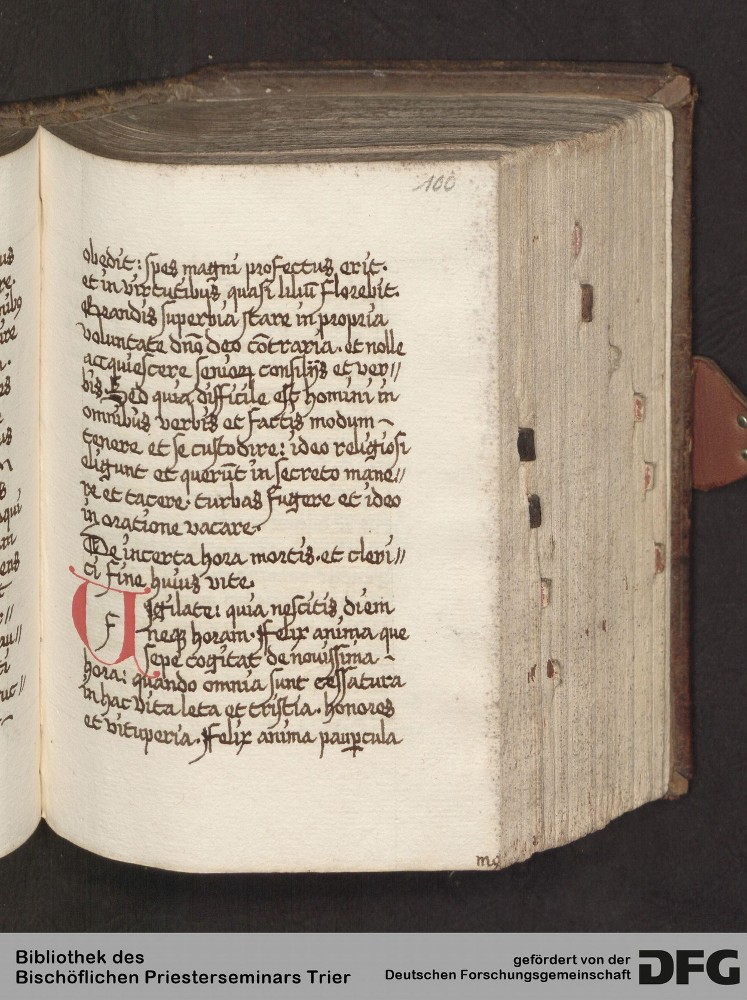 100
obedit: spes magni profectus erit.
et in virtutibus quasi liliū florebit.
Grandis superbia stare in propria
voluntate dn̄o deo cōtraria. et nolle
acquiescere seniorꝝ consilijs et ver//
bis. Sed quia difficile est homini in
omnibus verbis et factis modum
tenere et se custodire: ideo religiosi
eligunt et querūt in secreto mane//
re et tacere. turbas fugere et ideo
in oratione vacare.
De incerta hora mortis. et cleri//
ci fine huius vite.
Vigilate: quia nescitis diem
neqꝫ horam. Felix anima que
sepe cogitat de novissima
hora: quando omnia sunt cessatura
in hac vita leta et tristia. honores
et vituperia. Felix anima pauꝑcula
Bibliothek des
Bischöflichen Priesterseminars Trier
gefördert von der
Deutschen Forschungsgemeinschaft
DFG